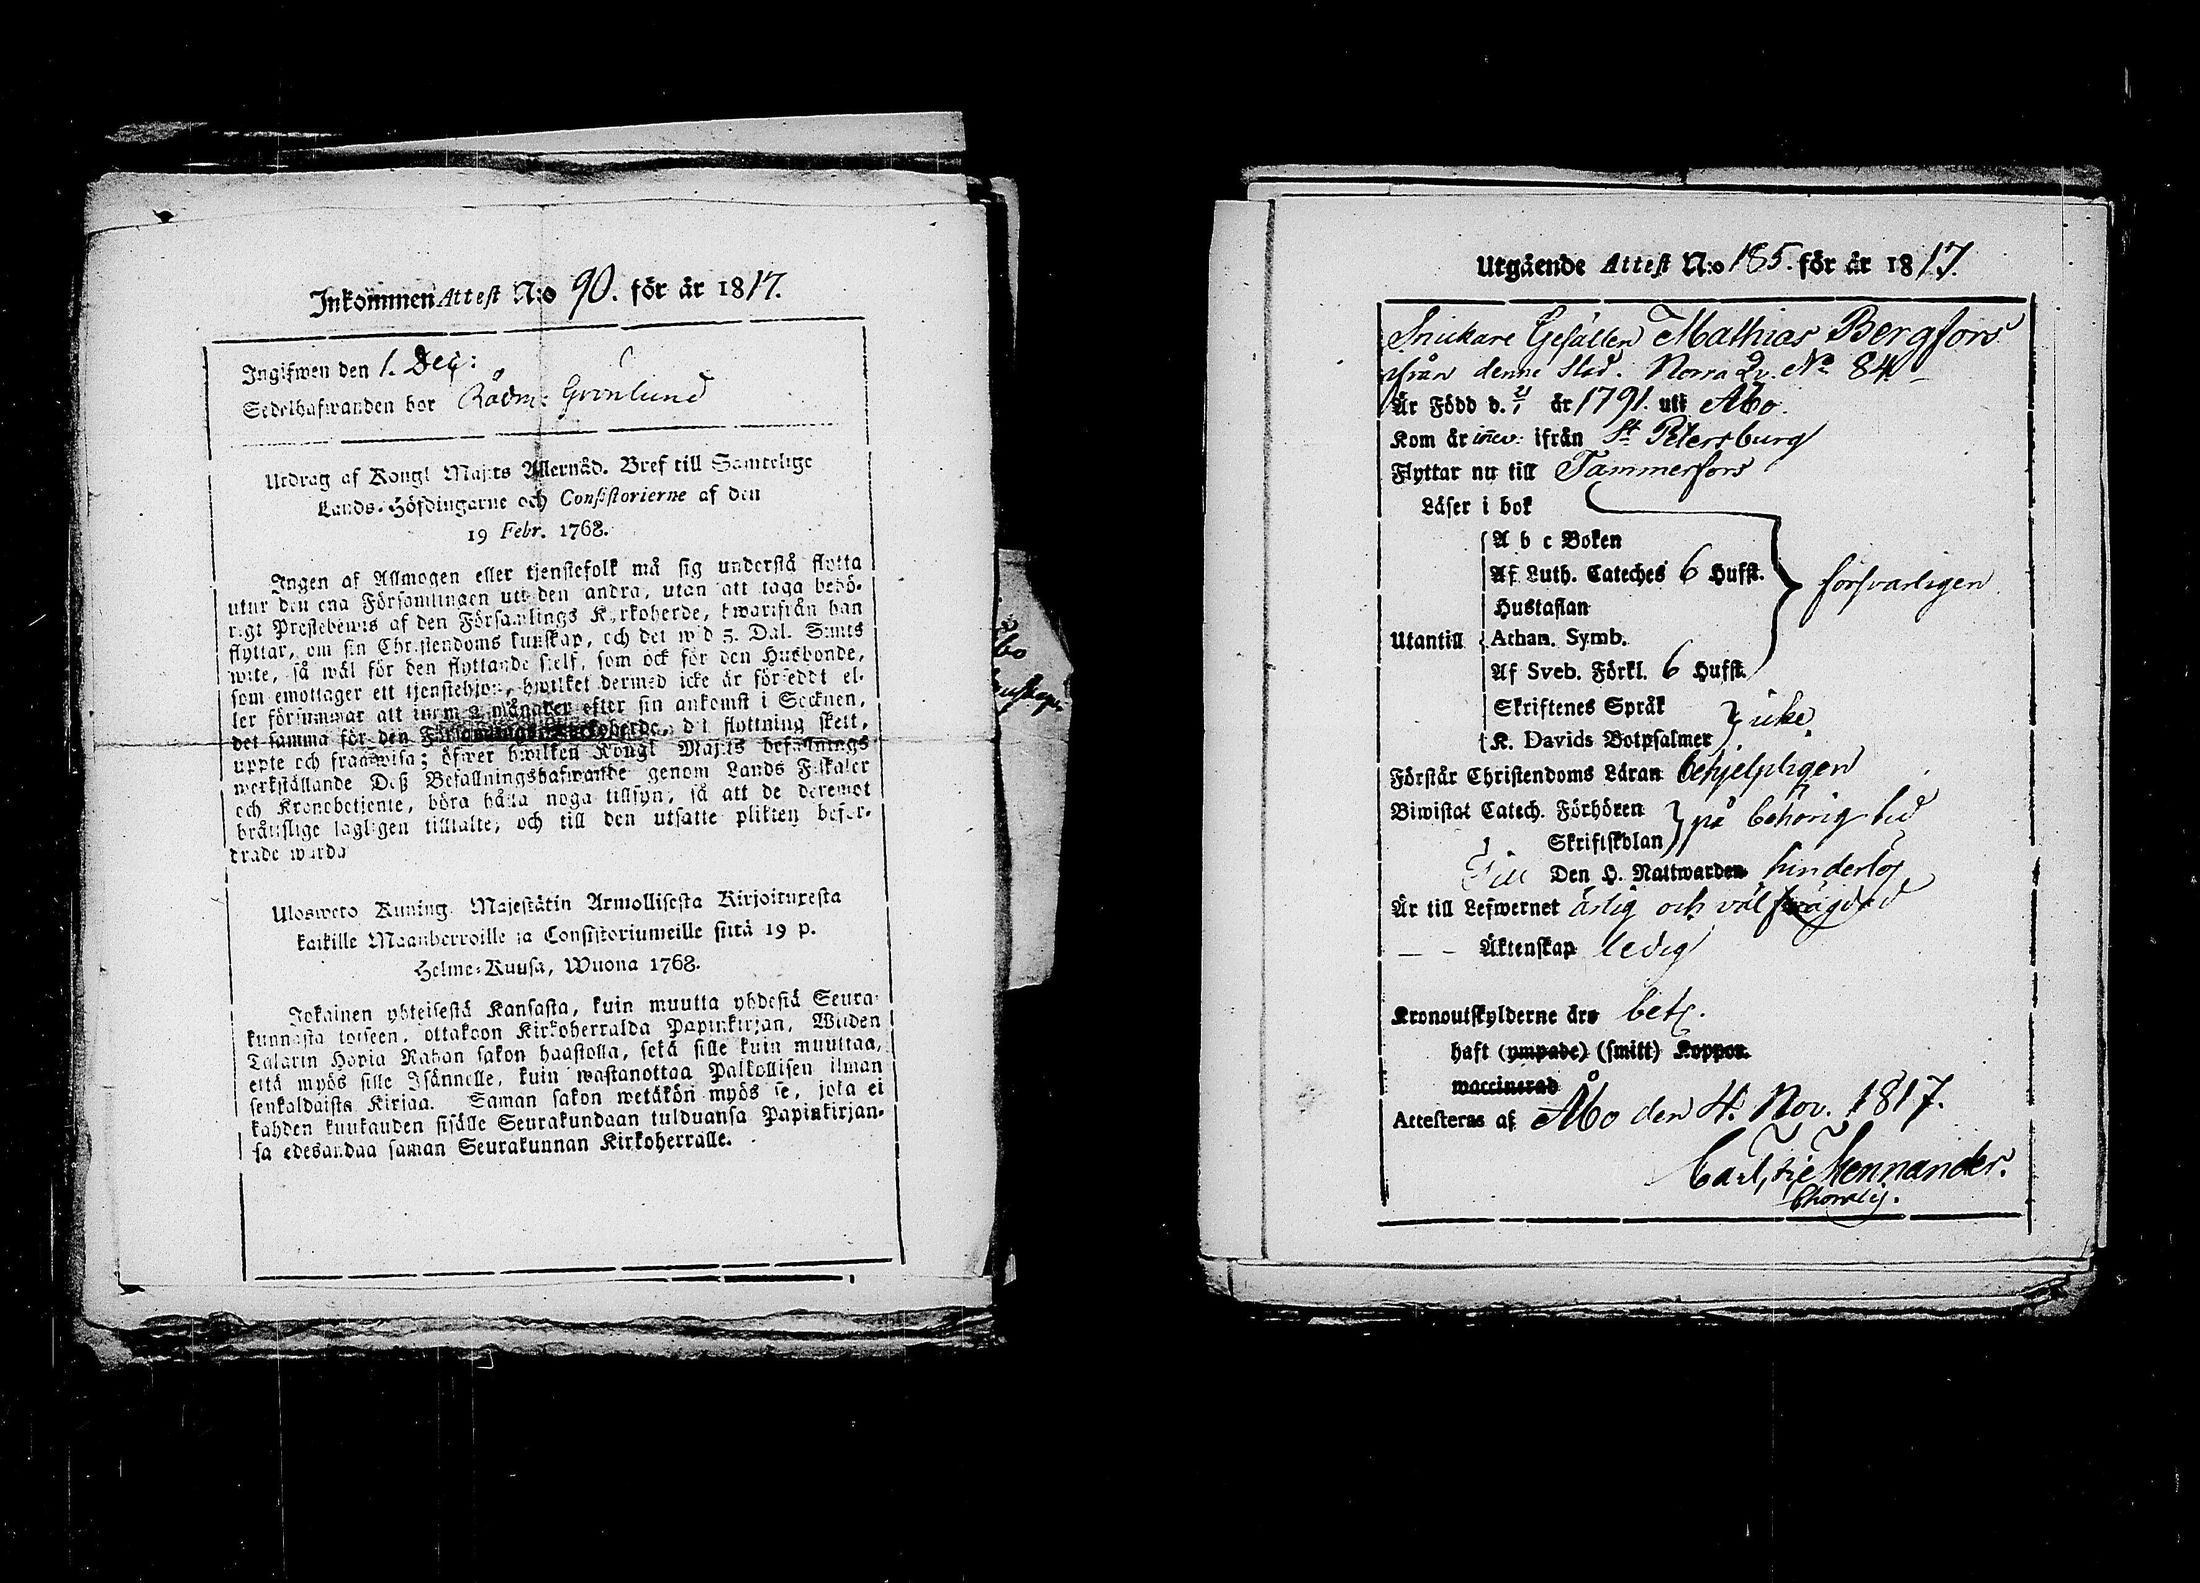 Inkommen Attest N:o 90. för år 1817.
Ingifwen den 1. Dec:
Sedelhafwanden bor Rådm: Grönlund
Utdrag af Kongl Maj:ts Allernåd. Bref till Samtelige
Lands-Höfdingarne och Consistorierne af den
19 Febr. 1768.
Ingen af Allmogen eller tjenstefolk må sig understå flytta
utur den ena Församlingen uti den andra, utan att taga behö-
rigt Prestebewis af den Församlings Kyrkoherde, hwarifrån han
flyttar, om sin Christendoms kunskap, och det wid 3. Dal. S:mts
wite, så wäl för den flyttande sielf, som ock för den Husbonde,
som emottager ett tjenstehjon, hwilket dermed icke är försedt el-
ler försummar att inom 2 månader efter sin ankomst i Socknen,
det samma för den Församlings Kyrkoherde, dit flyttning skett,
uppte och framwisa; öfwer hwilken Kongl Maj:ts befallnings
werkställande Deß Befallningshafwande genom Lands Fiskaler
och Kronobetjente, böra hålla noga tillsyn, så att de deremot
bråtslige lagligen tilltalte, och till den utsatte plikten befor-
drade warda
Ulosweto Kuning. Majestätin Armollisesta Kirjoituxesta
kaikille Maanherroille ja Consistoriumeille siitä 19 p.
Helme-Kuusa, Wuona 1768.
Jokainen yhteisestä Kansasta, kuin muutta yhdestä Seura-
kunnasta toiseen, ottakoon Kirkoherralda Papinkirjan, Wiiden
Talarin Hopia Rahan sakon haastolla, sekä sille kuin muuttaa,
että myös sille Isännelle, kuin wastanottaa Palkollisen ilman
senkaldaista Kirjaa. Saman sakon wetäkön myös se, jota ei
kahden kuukauden sisälle Seurakundaan tulduansa Papinkirjan-
sa edesandaa saman Seurakunnan Kirkoherralle.
Utgående Attest N:o 185. för år 1817.
Snickare Gesällen Mathias Bergfors
ifrån denne Stad. Norra Qv. No 84
Är Född d. 2/1 år 1791. uti Åbo.
Kom år innev: ifrån St Petersburg
Flyttar nu till Tammerfors
Läser i bok
A b c Boken
Af Luth. Cateches 6 Hufst. försvarligen
Hustaflan
Utantill Athan. Symb.
Af Sveb. Förkl. 6 Hufst.
Skriftenes Språk icke
K. Davids Botpsalmer
Förstår Christendoms Läran behjelpligen
Biwistat Catech. Förhören på behörig tid
Skriftskolan
Till Den H. Nattwarden hinderlös
Är till Lefwernet ärlig och väl frägdad
— – Äktenskap ledig
Kronoutskylderne äro bet.
haft (ympade) (smitt) Koppor.
waccinerad
Attesteras af Åbo den 4. Nov. 1817.